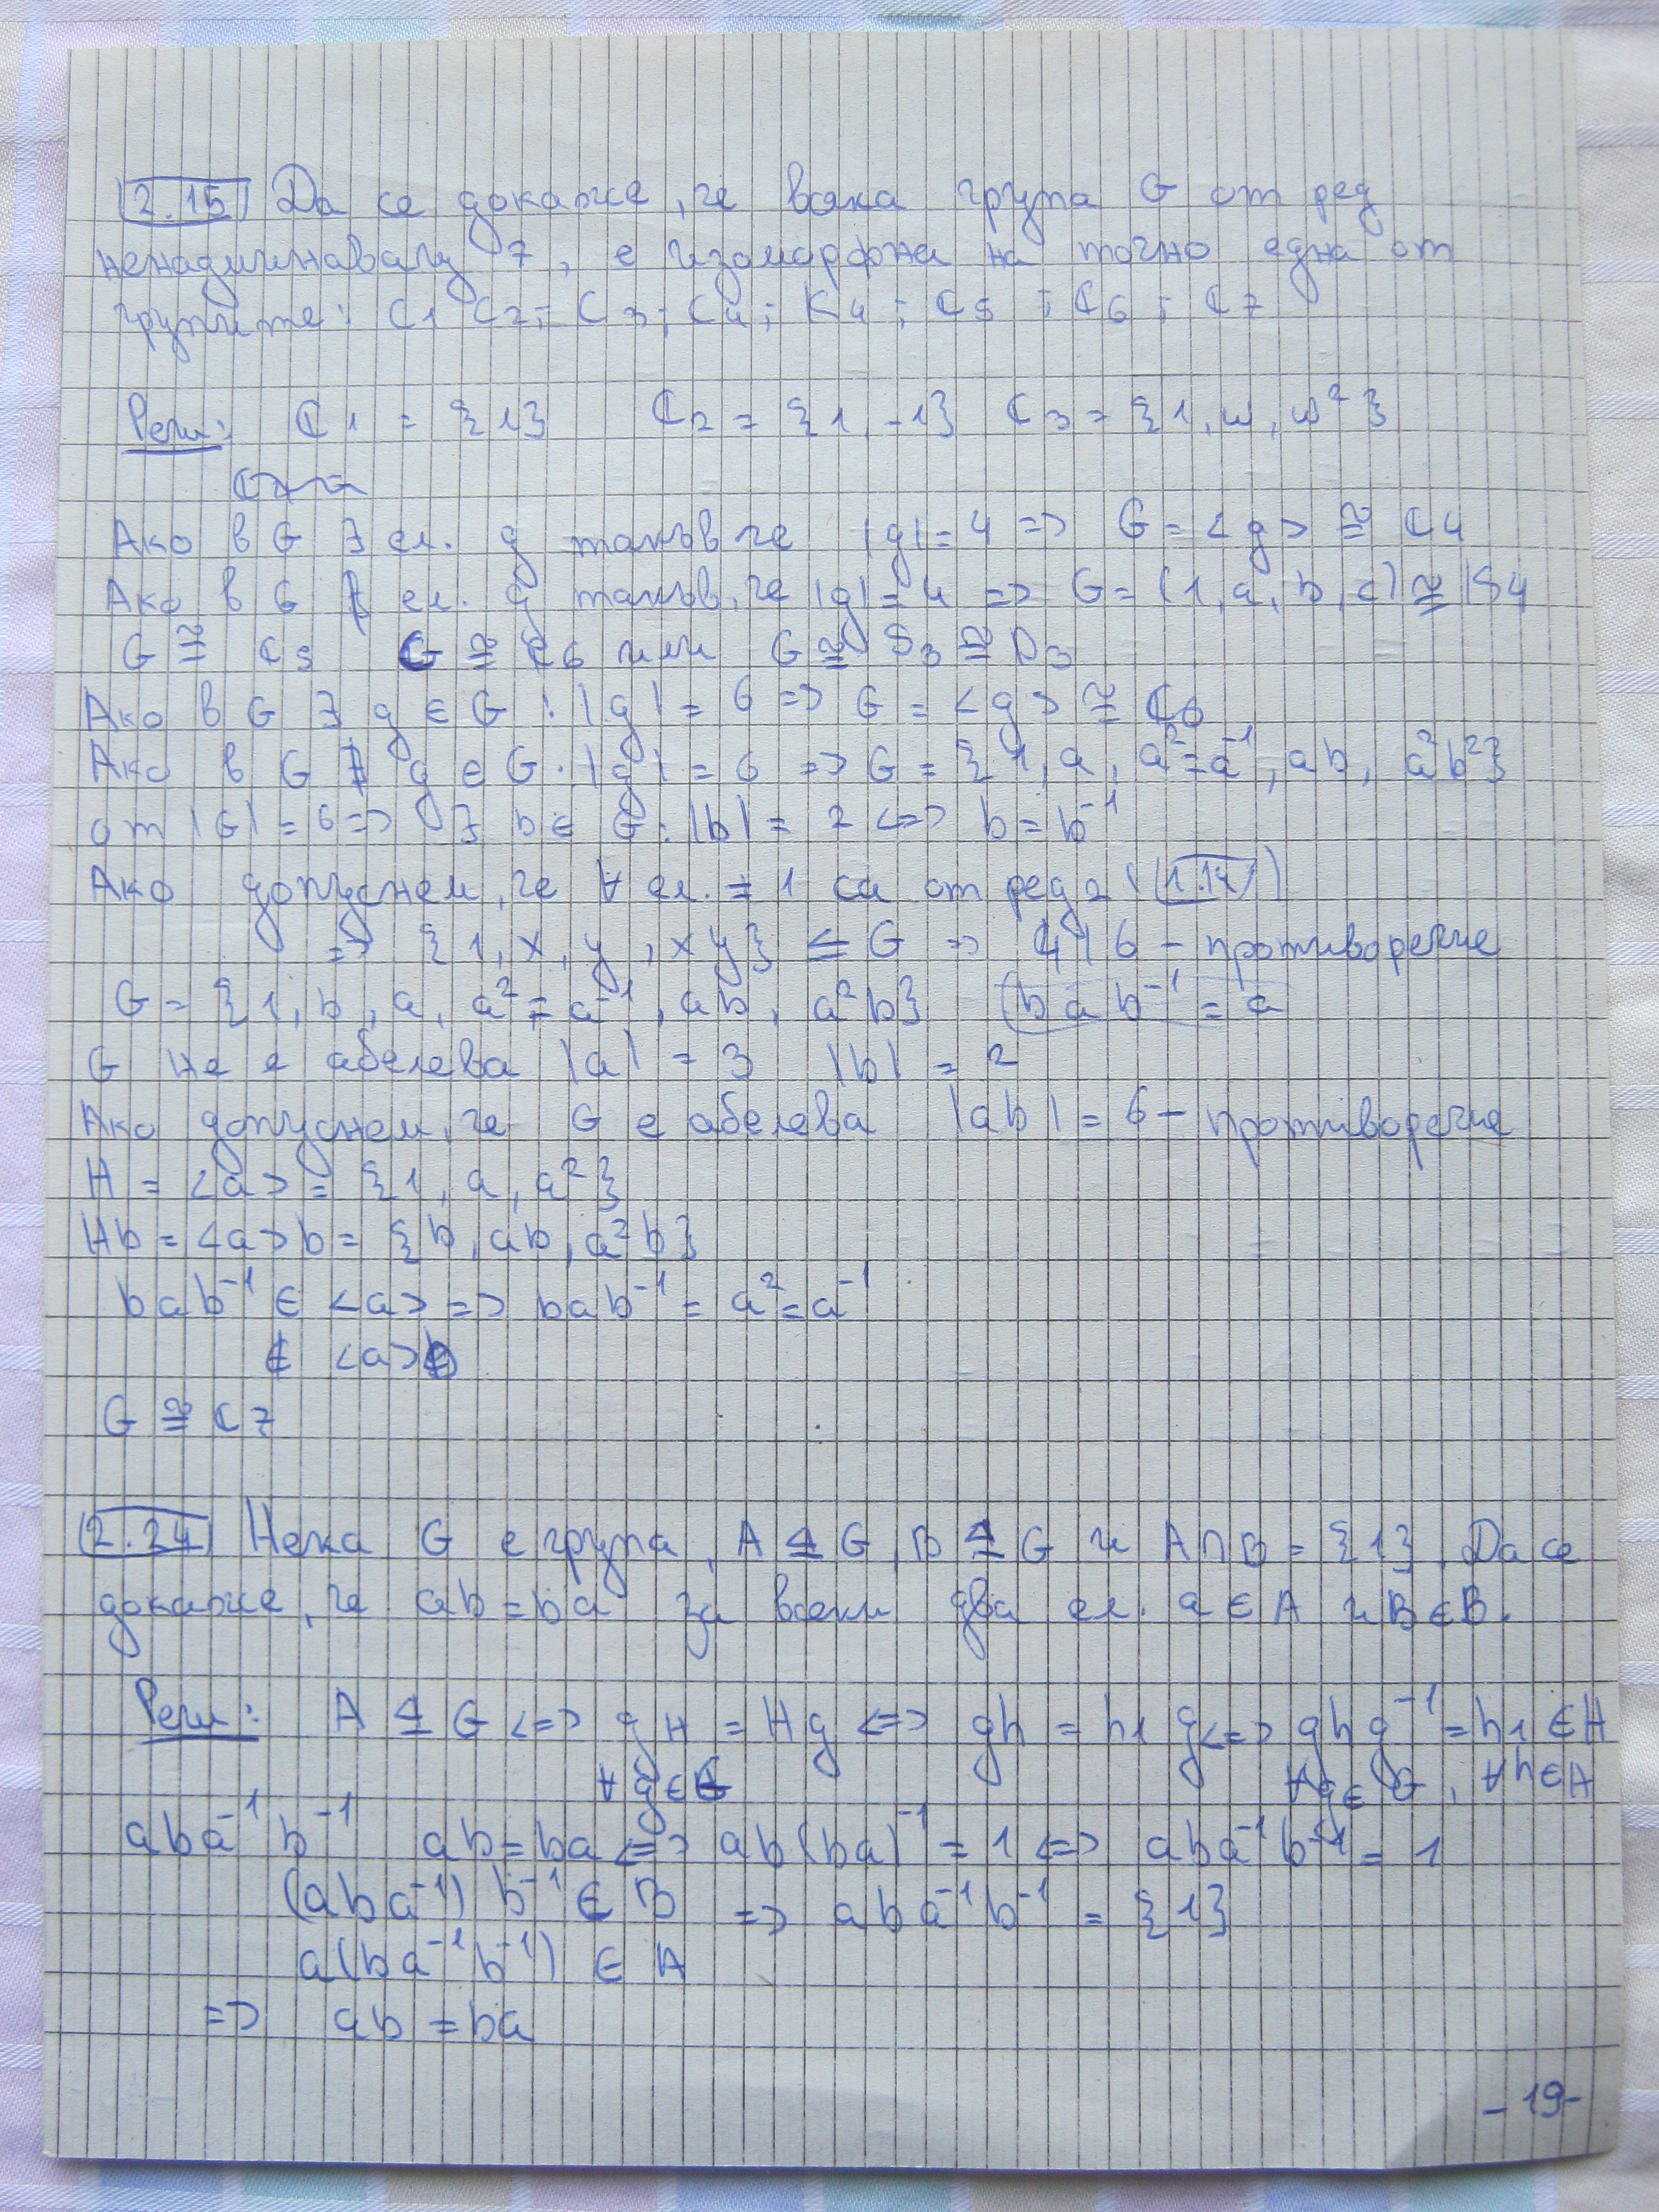 2.15 Да се докаже, че всяка група G от ред
ненадминаващ 7, е изоморфна на точно една от
групите: C1 C2; C3; C4; K4; C5; C6; C7
Реш: ℂ1 = {1} ℂ2 = {1, -1} ℂ3 = {1, ω, ω²}
Ако в G ∃ ел. g такъв че |g| = 4 => G = <g> ≅ ℂ4
Ако в G ∄ ел. g такъв, че |g| = 4 => G = (1, a, b, c) ≅ K4
G ≅ ℂ5 G ≅ ℂ6 или G ≅ S3 ≅ D3
Ако в G ∃ g ∈ G : |g| = 6 => G = <g> ≅ ℂ6
Ако в G ∄ g ∈ G : |g| = 6 => G = {1, a, a² = a⁻¹, ab, a²b²}
от |G| = 6 => ∃ b ∈ G : |b| = 2 <=> b = b⁻¹
Ако допуснем, че ∀ ел. ≠ 1 са от ред 2
=> {1, x, y, xy} ≤ G => 4 | 6 - противоречие
G = {1, b, a, a² = a⁻¹, ab, a²b} (bab⁻¹ = a
G не е абелева |a| = 3 |b| = 2
Ако допуснем, че G е абелева |ab| = 6 - противоречие
H = <a> = {1, a, a²}
Hb = <a>b = {b, ab, a²b}
bab⁻¹ ∈ <a> => bab⁻¹ = a² = a⁻¹
∉ <a>b
G ≅ ℂ7
2.24 Нека G е група, A ⊴ G, B ⊴ G и A∩B = {1}. Да се
докаже, че ab = ba за всеки два ел. a ∈ A и B ∈ B.
Реш: A ⊴ G <=> gH = Hg <=> gh = h1 g <=> ghg⁻¹ = h1 ∈ H
∀ g ∈ G ∀g ∈ G, ∀h ∈ A
aba⁻¹b⁻¹ ab = ba <=> ab(ba)⁻¹ = 1 <=> aba⁻¹b⁻¹ = 1
(aba⁻¹) b⁻¹ ∈ B => aba⁻¹b⁻¹ = {1}
a(ba⁻¹b⁻¹) ∈ A
=> ab = ba
- 19 -